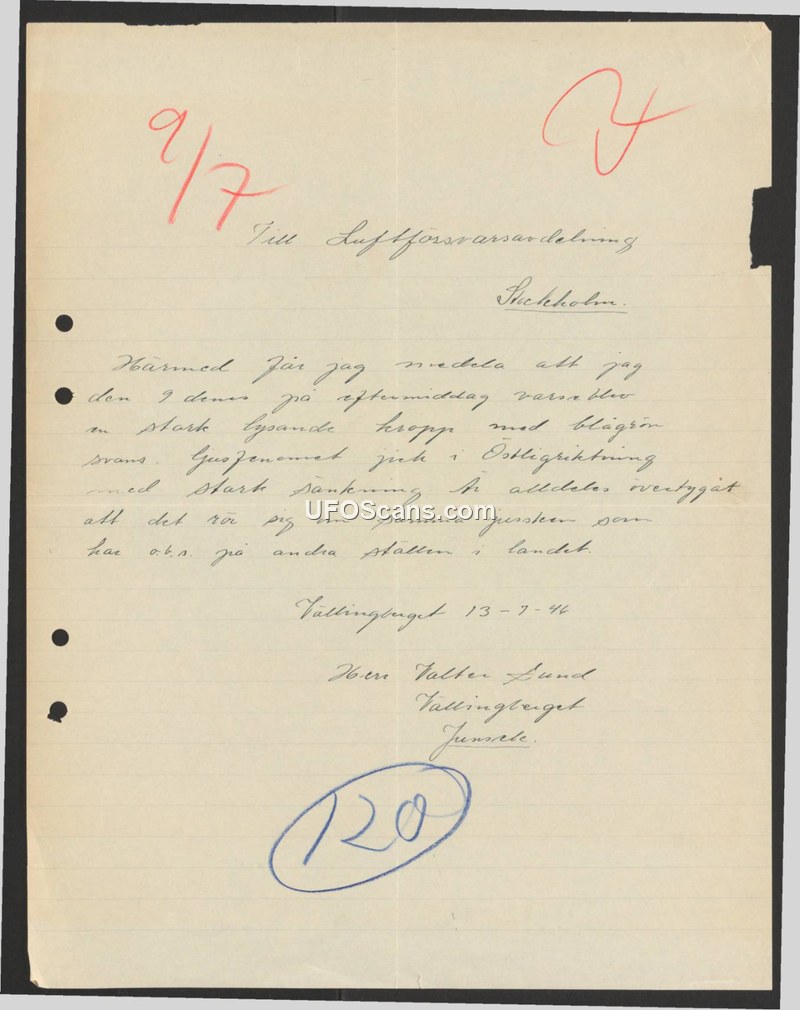 9/7
Till Luftförsvarsavdelning
Stockholm.
Härmed får jag medela att jag
den 9 denes på eftermiddag varse blev
en stark lysande kropp med blågrön
svans. ljusfenomet jick i Östligriktning
med stark sänkning Är alldeles övertygat
att det rör sig om samma som
har o.b.s. på andra ställen i landet.
UFOScans.com
Vällingberget 13-7-46
Herr Valter Lund
Vällingberget
Junsele.
120